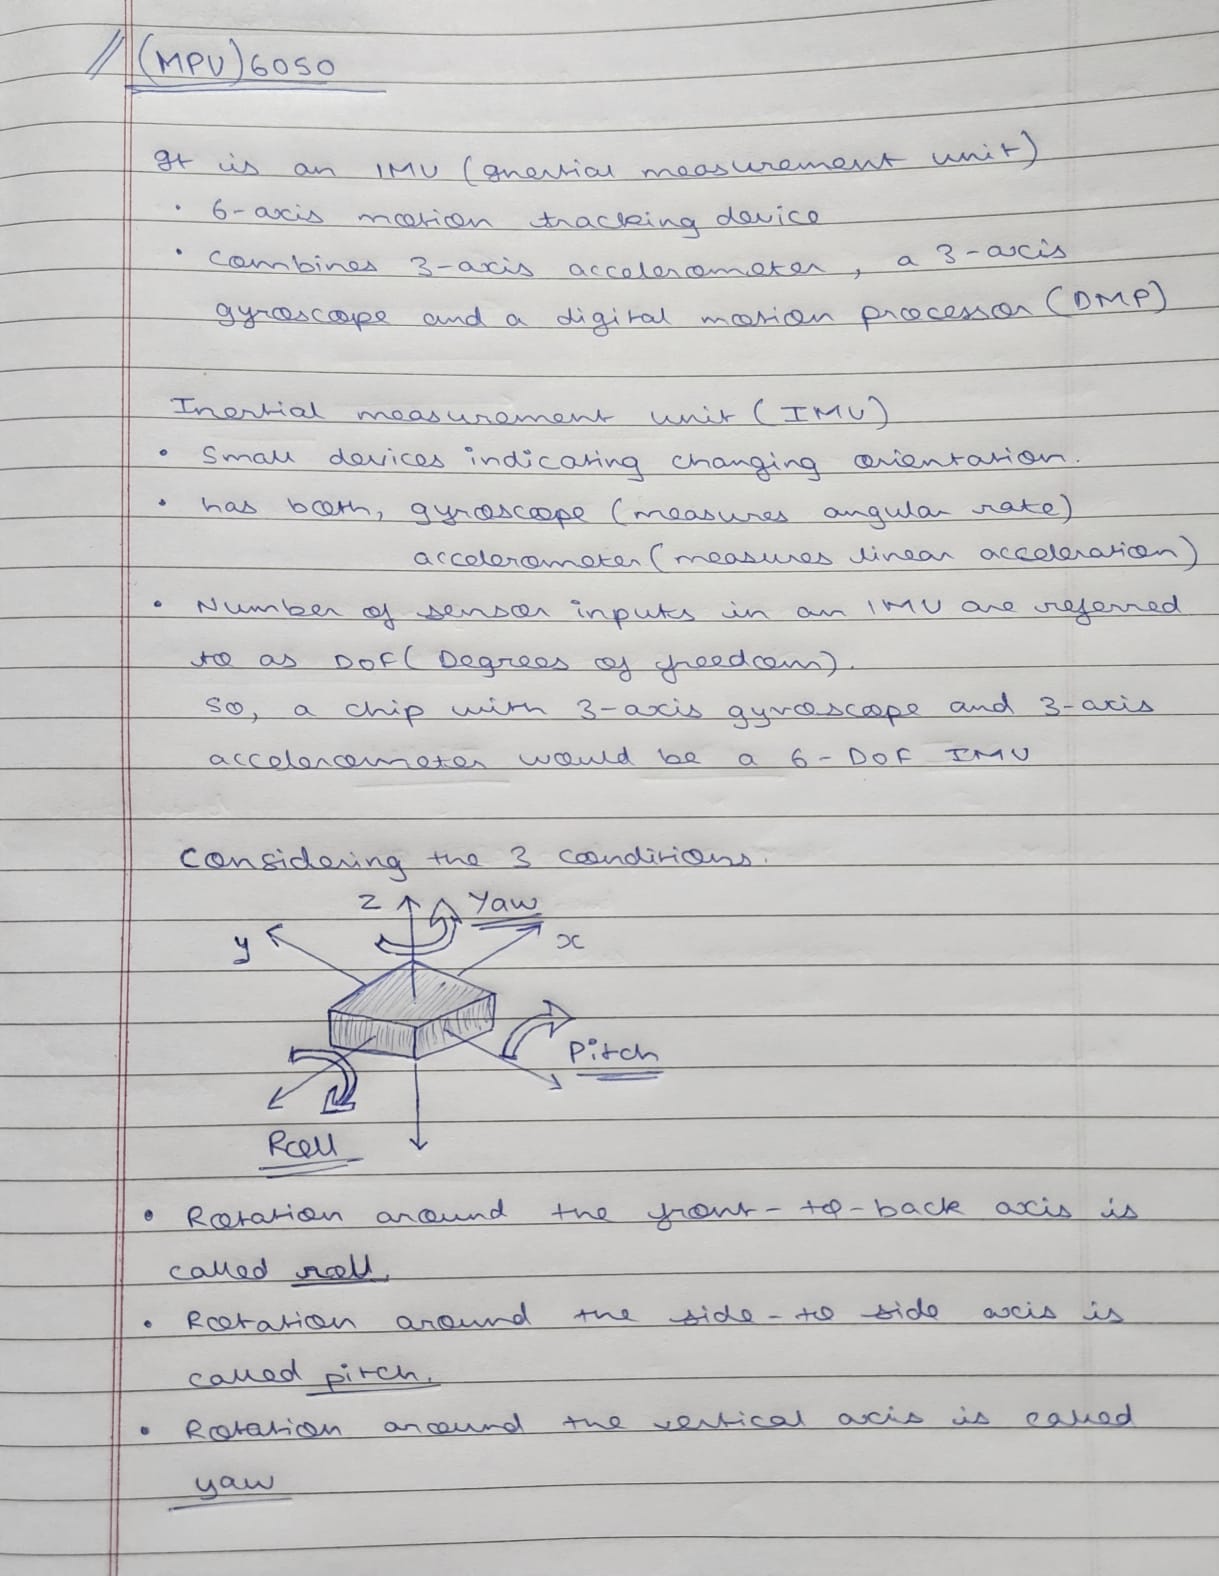 // (MPU) 6050
It is an IMU (Inertial measurement unit)
· 6-axis motion tracking device
· combines 3-axis accelerometer, a 3-axis
gyroscope and a digital motion processor (DMP)
Inertial measurement unit (IMU)
• Small devices indicating changing orientation.
• has both, gyroscope (measures angular rate)
accelerometer (measures linear acceleration)
• Number of sensor inputs in an IMU are referred
to as DOF (Degrees of freedom).
So, a chip with 3-axis gyroscope and 3-axis
accelerometer would be a 6-DOF IMU
Considering the 3 conditions.
z Yaw
y x
Pitch
Roll
• Rotation around the front-to-back axis is
called roll.
• Rotation around the side-to side axis is
called pitch.
• Rotation around the vertical axis is called
yaw